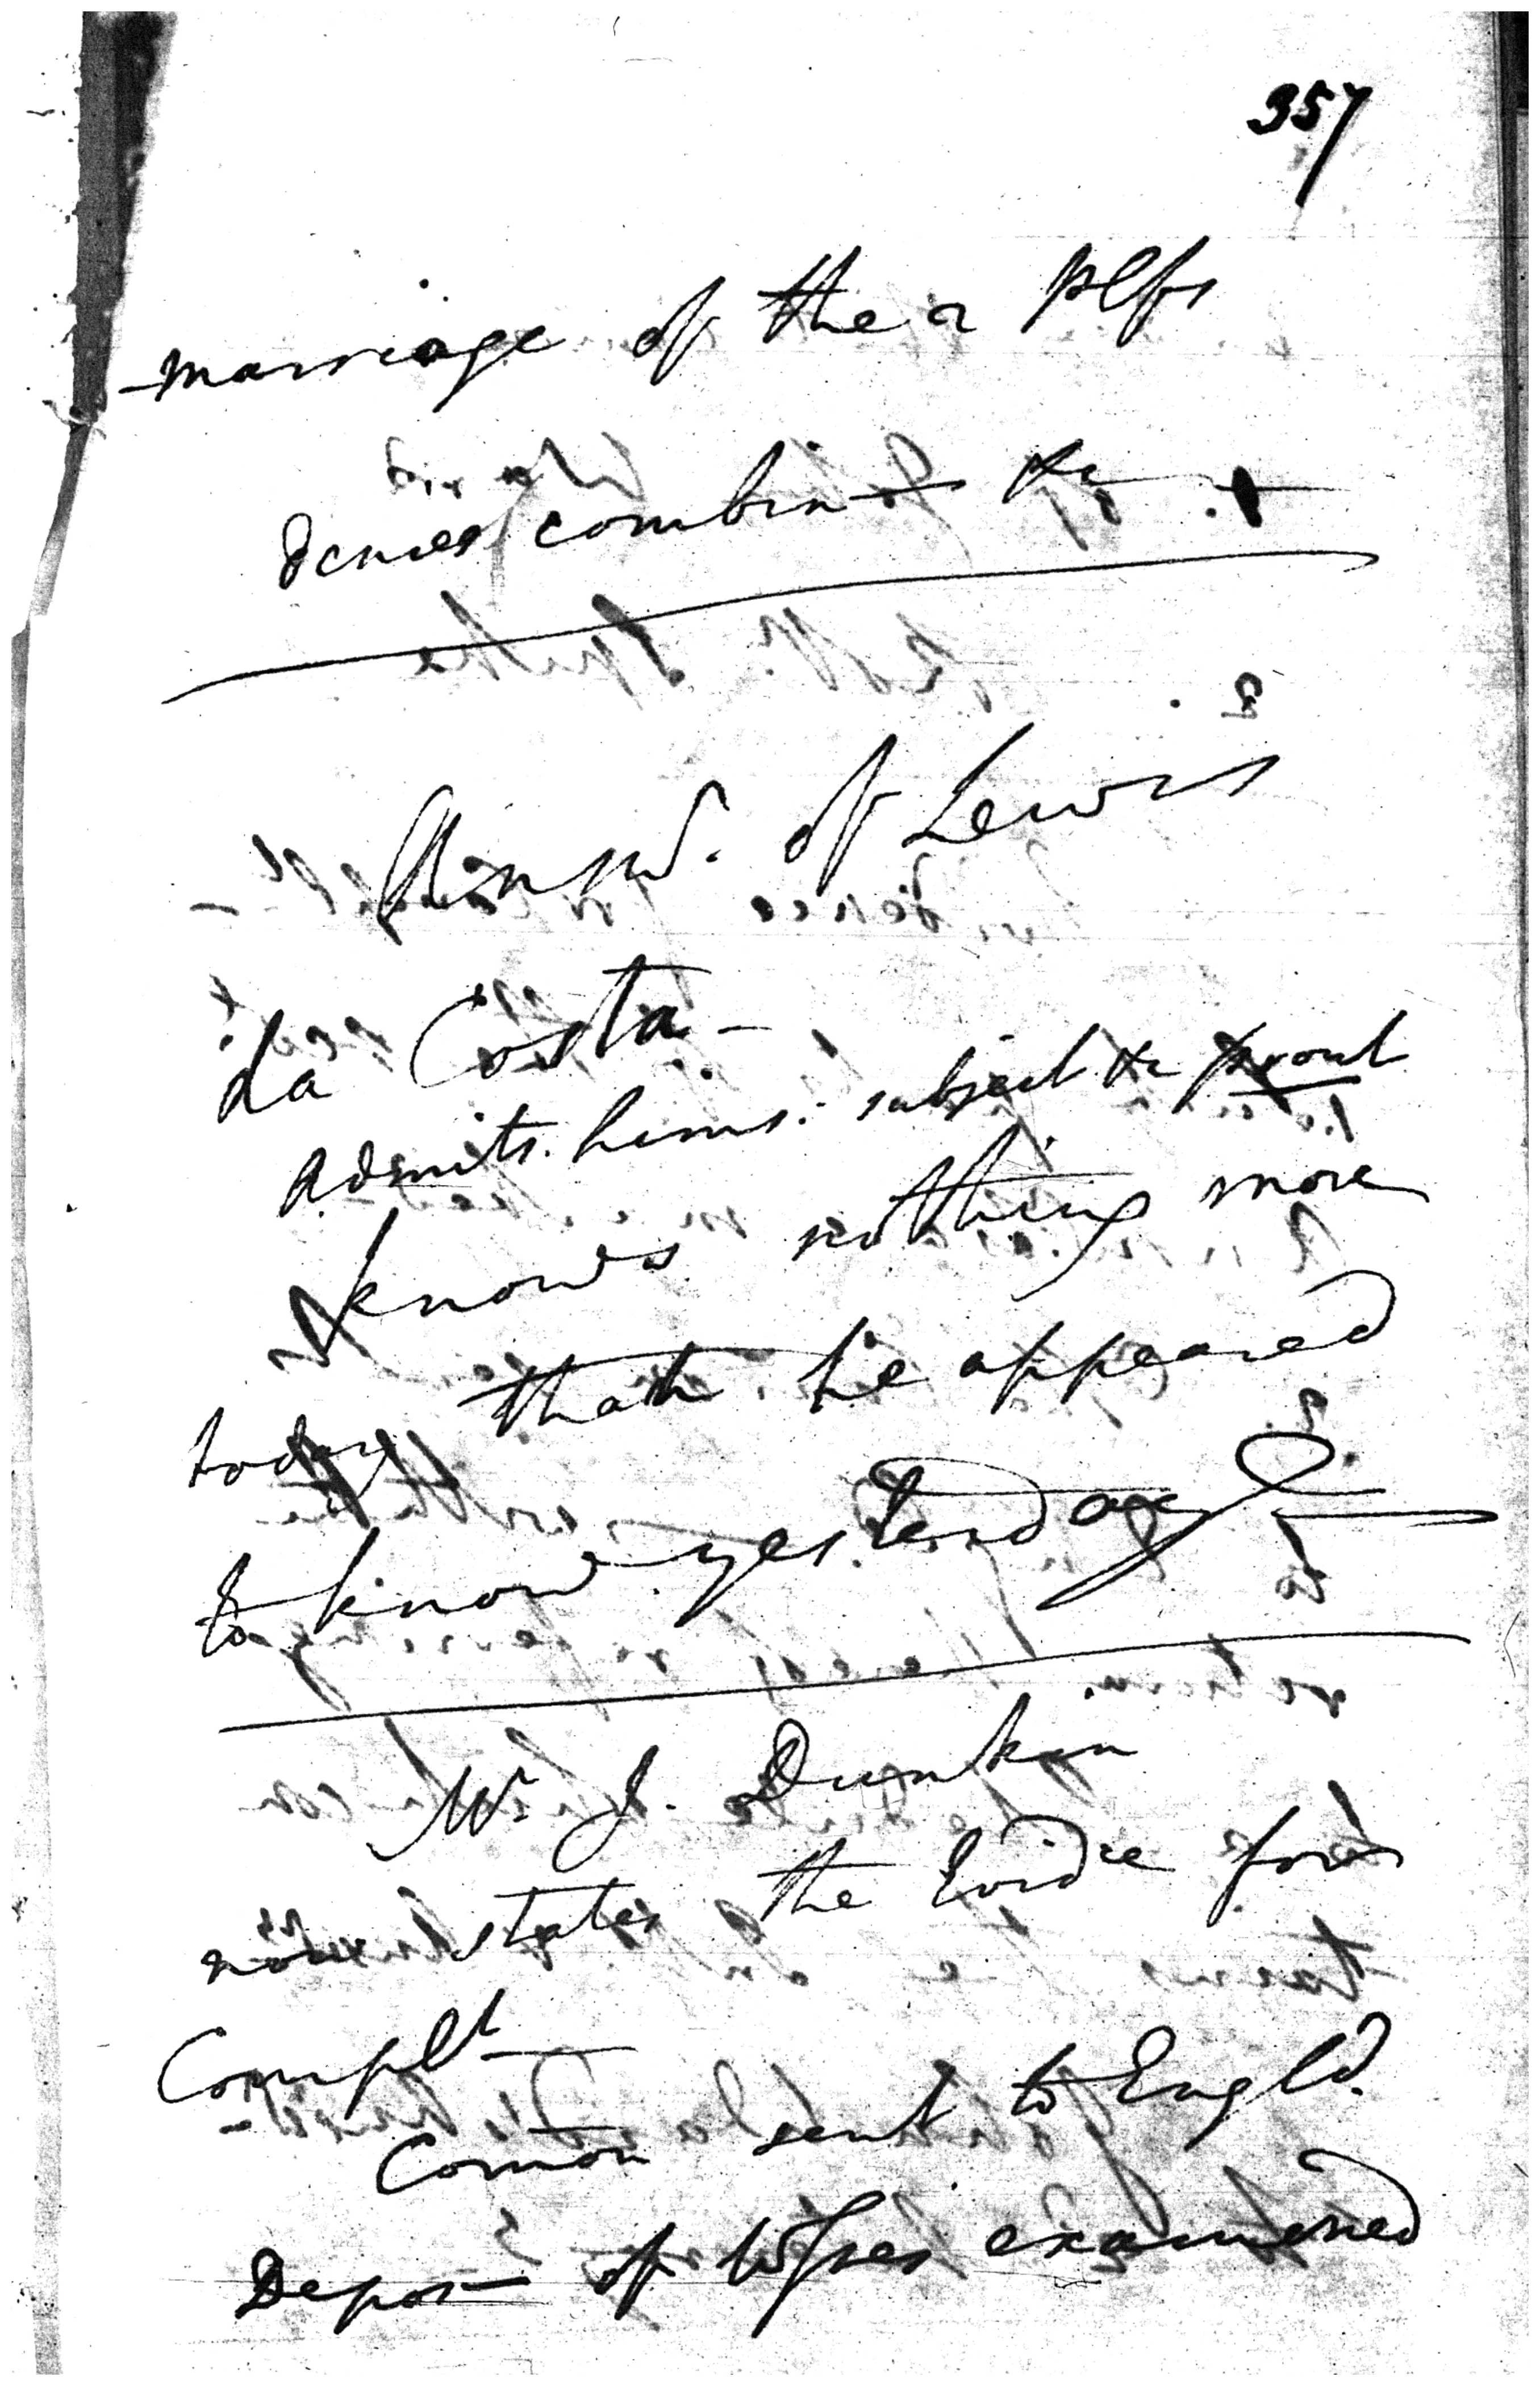 357
marriage of the 2 Plfs
denies combin— &c —
Answr. of Lewis
da Costa —
Admits. hims: subject &c prout
knows nothing more
today than he appeared
to know yesterday —
Mr. J. Dunkin
now states the Evidce for
Complt —
Comon sent to Engld.
Depos— of Wses examined